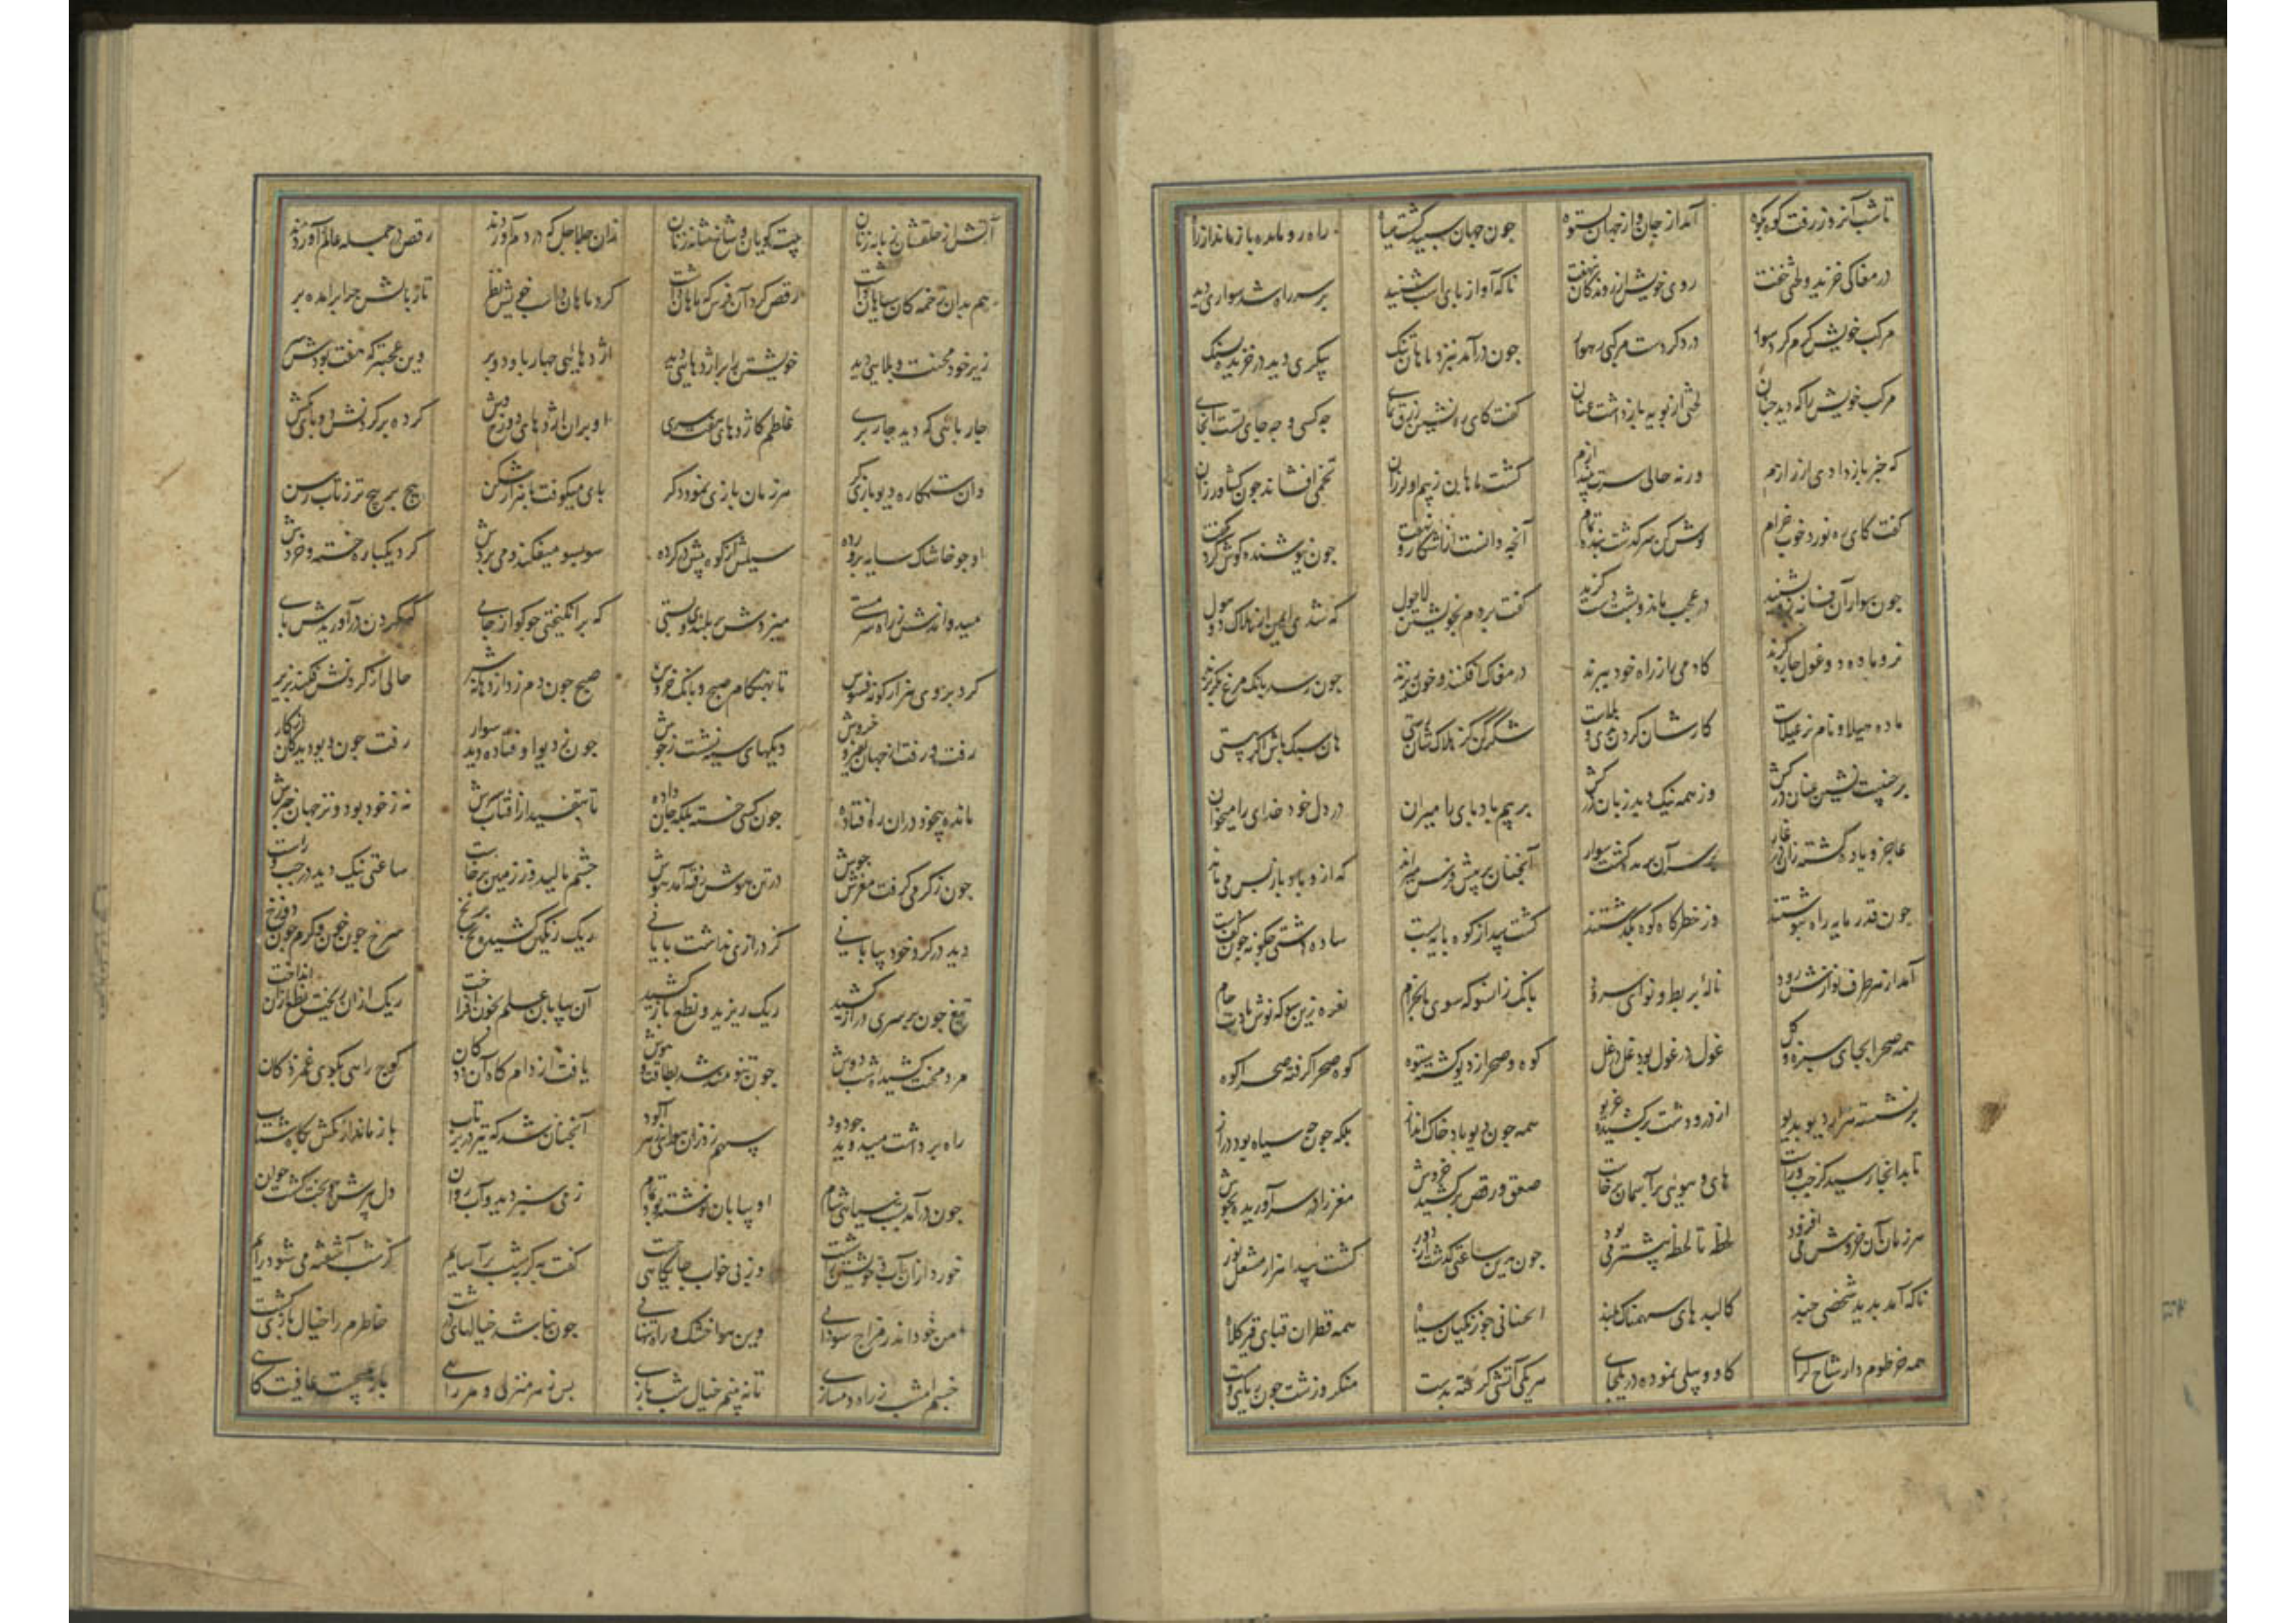 تا شب آنروز رفت کوه بکوه آمد از جان و از جهان بستوه چون جهان سپید گشت سیاه راه رو مانده باز ماند از راه
در مغاکی خزید و لختی خفت روی خویش از روندگان بنهفت ناکه آواز پای اسب شنید بر سر راه شد سواری دید
مرکب خویش کرم کرد سوار در دکر دست مرکبی رهوار چون درآمد بنزد ماهان تنک پیکری دید در خزیده بسنک
مرکب خویش را که دید جنان لختی از پویه باز داشت عنان کفت کای ره نشین زرق نمای چه کسی و چه جای تست اینجای
که خبر باز دادی از رازم ور نه حالی سرت بیندازم کشت ماهان ز بیم او لرزان تخمی افشاند چون کشاورزان
کفت کای ره نورد خوب خرام کوش کن سرکذشت بنده تمام آنچه دانست از آشکار و نهفت چون نیوشنده کوش کرد بکفت
چون سوار آن فسانه زو بشنید در عجب ماند و پشت دست کزید کفت بردم بخویشتن لاحول که شدی ایمن از هلاک دو هول
نر و ماده دو غول چاره کرند کادمی را ز راه خود ببرند در مغاک افکنند و خون ریزند چون رسد بانک مرغ بکریزند
ماده هیلا و نام نر غیلاست کارشان کردن بدی و بلاست شکر کن کز هلاکشان رستی هان سبک باش اکر کسی هستی
بر جنیبت نشین عنان درکش وز همه نیک و بد زبان درکش بر پیم بادپای را میران در دل خود خدای را میخوان
عاجز و یاوه کشته زان در غار بر سر آن پرنده کشت سوار آنجنان بر پیش فرس میراند که ازو باد باز پس میماند
چون قدر مایه راه بنوشتند وز خطرکاه کوه بکذشتند کشت پیدا ز کوه پایه پست ساده دشتی چکونه چون کف دست
آمد از هر طرف نوازش رود ناله بربط و نوای سرود بانک زانسو که سوی ما بخرام نعره زین سو که نوش بادت جام
همه صحرا بجای سبزه و کل غول در غول بود و غل در غل کوه و صحرا ز دیو کشته ستوه کوه صحرا کرفته صحرا کوه
بر نشسته هزار دیو بدیو از در و دشت برکشیده غریو همه چون دیو باد خاک انداز بلکه چون جح سیاه بود دراز
تا بدانجا رسید کز چپ و راست های و هوئی بر آسمان برخاست صفق و رقص برکشیده خروش مغز را در سر آوریده بجوش
هر زمان آن خروش می افزود لحظه تا لحظه بیشتر می بود چون برین ساعتی کذشت از دور کشت پیدا هزار مشعل نور
ناکه آمد پدید شخصی چند کالبد های سهمناک و بلند چو زنکیان سیاه همه قطران قبای قیر کلاه
همه خرطوم دار شاخ کرای کاو و پیلی نموده در یکجای هر یکی آتشی کرفته بدست منکر و زشت چون
آتش از حلقشان زبانه زنان بیت کویان و شاخشانه زنان زان جلاجل که در دم آوردند رقص در جمله عالم آوردند
هم بدان زخمه کان سیاهان داشت رقص کرد آن فرس که ماهان داشت کرد ماهان در اسب خویش نظر تا ز پایش چرا برآمد پر
زیر خود محنت و بلایی دید خویشتن را بر اژدهایی دید اژدهایی چهار پا و دو پر وین عجبتر که هفت بودش سر
او بران اژدهای دوزخ وش کرده بر کردنش دو پای بکش
وان ستمکاره دیو بازی کر هر زمان بازی نمود دکر پای میکوفت با هزار شکن پیچ بر پیچ تر ز تاب رسن
او چو خاشاک سایه پرورده سیلش از کوه پیش در کرده سو بسو میفکند و می بردش کرد یکباره خسته و خردش
میدواندش ز راه سرمستی میزدش بر بلندی و پستی که بر انکیختی چو کو از جای که بکردن درآوریدش پای
کرد بر وی هزار کونه فسوس تا بهنکام صبح و بانک خروس صبح چون دم زد از دهانه شیر حالی از کردنش فکند بزیر
رفت و رفت از جهان نفیر و خروش دیکهای سیه نشست ز جوش چون ز دیو اوفتاد دیو سوار رفت چون دیو دیدکان از کار
مانده بیخود دران ره افتاده چون کسی خسته بلکه جان داده تا نتفسید از آفتاب سرش نه ز خود بود و نز جهان خبرش
چون ز کرمی کرفت مغزش جوش در تن هوش رفته آمد هوش چشم مالید و ز زمین برخاست ساعتی نیک دید در چپ و راست
دید در کرد خود بیابانی کز درازی نداشت پایانی ریک رنکین کشیده نخ بر نخ سرخ چون خون و کرم چون دوزخ
تیغ چون بر سری دراز کشید ریک ریزید و نطع باز کشید آن بیابان علم بخون افراخت ریک ازان ریخت نطع ازان انداخت
مرد محنت کشیده شب دوش چون تنومند شد بطاقت و هوش یافت از دامکاه آن ددکان کوچ راهی بکوی غمزدکان
راه برداشت میدوید چو دود سهم زد زان هوای زهر آلود آنچنان شد که تیر در پرتاب باز ماند از تکش بکاه شتاب
چون درآمد بشب سیاهی شام او بیابان نوشته بود تمام زمی سبز دید و آب روان دل پیرش چو بخت کشت جوان
خورد ازان آب و خویشتن را شست وز پی خواب جایکاهی جست کفت به کر بشب بر آسایم کز شب آشفته می شود رایم
من خود اندر مزاج سودائی وین هوا خشک و راه تنهائی چون نباشد خیالهای درشت خاطرم را خیال بازی کشت
خسبم امشب ز راه دمسازی تا نه بینم خیال شب بازی پس ز هر منزلی و هر رائی باز میجست عافیت کائی